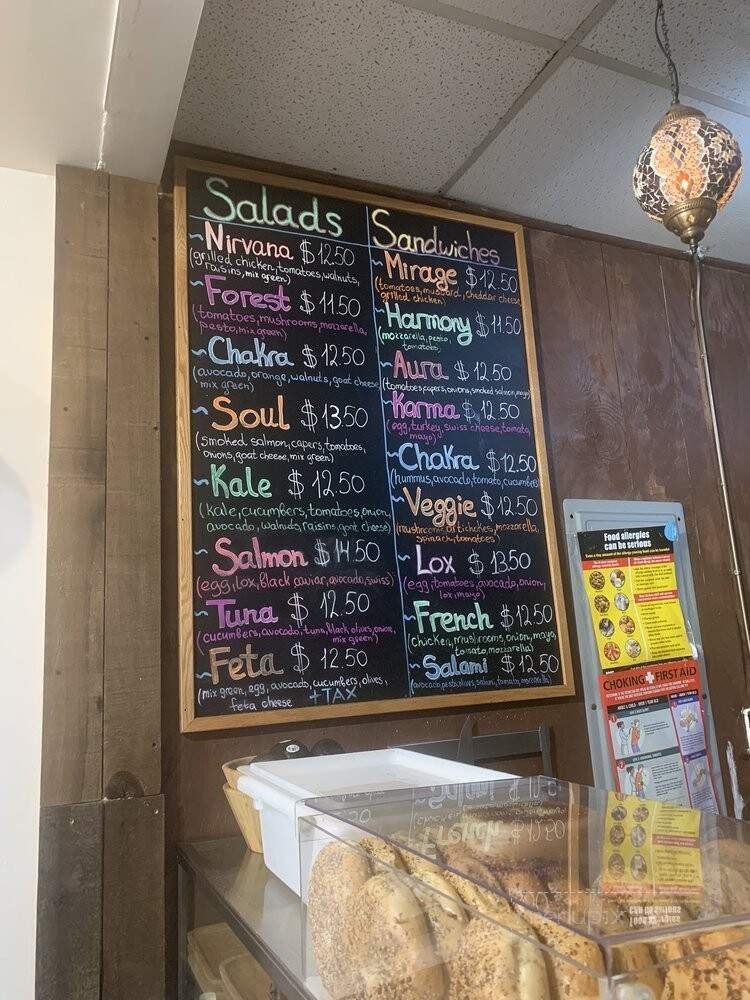 Salads
~Nirvana $12.50
(grilled chicken, tomatoes, walnuts,
raisins, mix green)
~Forest $11.50
(tomatoes, mushrooms, mozzarella,
pesto, mix green)
~Chakra $12.50
(avocado, orange, walnuts, goat cheese
mix green)
~Soul $13.50
(smoked salmon, capers, tomatoes,
onions, goat cheese, mix green)
~Kale $12.50
(kale, cucumbers, tomatoes, onion,
avocado, walnuts, raisins, goat cheese)
~Salmon $14.50
(egg, lox, black caviar, avocado, swiss)
~Tuna $12.50
(cucumbers, avocado, tuna, black olives, onion,
mix green)
~Feta $12.50
(mix green, egg, avocado, cucumbers, olives,
feta cheese
+TAX
Sandwiches
~Mirage $12.50
(tomatoes, mustard, cheddar cheese,
grilled chicken)
~Harmony $11.50
(mozzarella, pesto,
tomatoes)
~Aura $12.50
(tomatoes, capers, onions, smoked salmon, mayo)
~Karma $12.50
(egg, turkey, swiss cheese, tomato,
mayo)
~Chakra $12.50
(hummus, avocado, tomato, cucumbers)
~Veggie $12.50
(mushrooms, artichokes, mozzarella,
spinach, tomatoes)
~Lox $13.50
(egg, tomatoes, avocado, onion,
lox, mayo)
~French $12.50
(chicken, mushrooms, onion, mayo,
tomato, mozzarella)
~Salami $12.50
(avocado, pesto, olives, salami, tomato, mozzarella)
Food allergies
can be serious
CHOKING FIRST AID